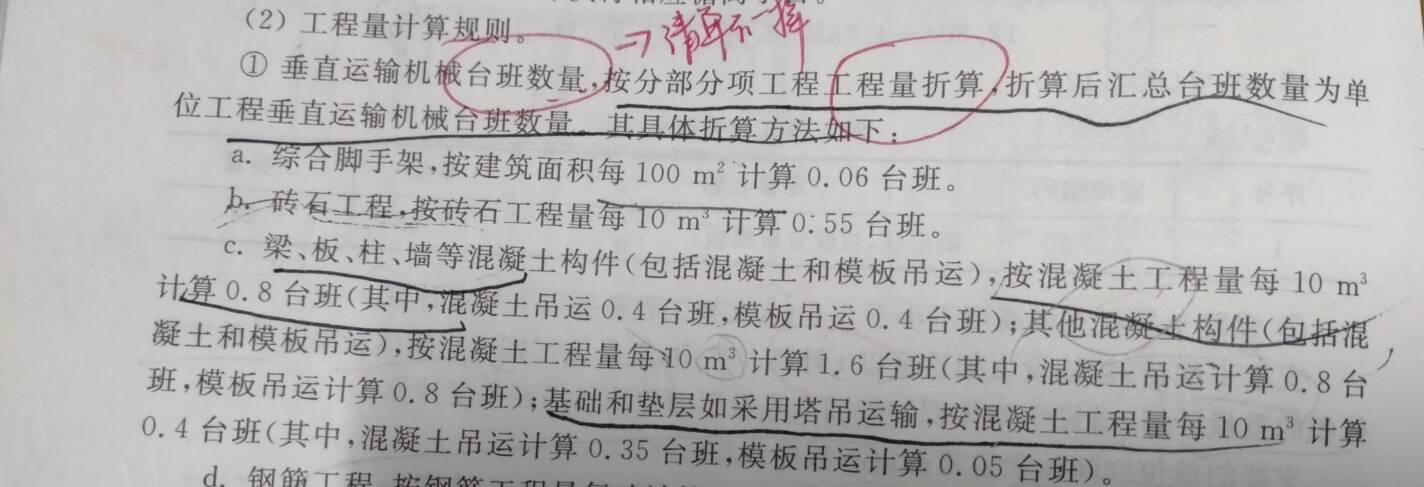 (2) 工程量计算规则。
⇒清单不一样
① 垂直运输机械台班数量,按分部分项工程工程量折算,折算后汇总台班数量为单
位工程垂直运输机械台班数量。其具体折算方法如下:
a. 综合脚手架,按建筑面积每 100 m² 计算 0.06 台班。
b. 砖石工程,按砖石工程量每 10 m³ 计算 0.55 台班。
c. 梁、板、柱、墙等混凝土构件(包括混凝土和模板吊运),按混凝土工程量每 10 m³
计算 0.8 台班(其中,混凝土吊运 0.4 台班,模板吊运 0.4 台班);其他混凝土构件(包括混
凝土和模板吊运),按混凝土工程量每 10 m³ 计算 1.6 台班(其中,混凝土吊运计算 0.8 台
班,模板吊运计算 0.8 台班);基础和垫层如采用塔吊运输,按混凝土工程量每 10 m³ 计算
0.4 台班(其中,混凝土吊运计算 0.35 台班,模板吊运计算 0.05 台班)。
d. 钢筋工程,按钢筋工程量每